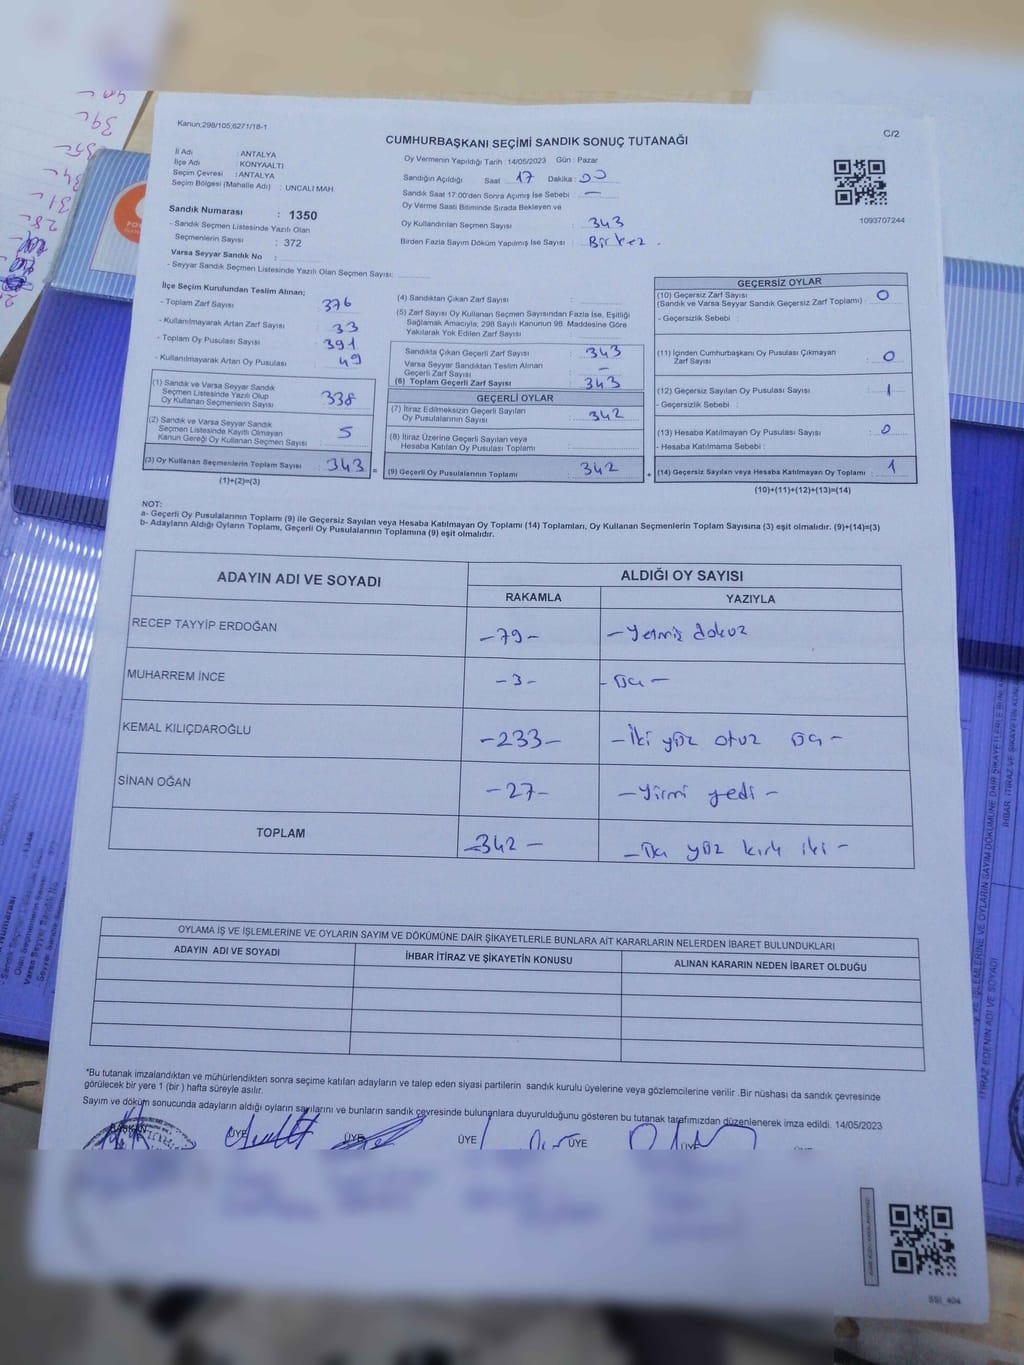 Kanun;298/105;6271/18-1
CUMHURBAŞKANI SEÇİMİ SANDIK SONUÇ TUTANAĞI
C/2
İl Adı : ANTALYA
İlçe Adı : KONYAALTI
Seçim Çevresi : ANTALYA
Seçim Bölgesi (Mahalle Adı) : UNCALI MAH.
Sandık Numarası : 1350
- Sandık Seçmen Listesinde Yazılı Olan
Seçmenlerin Sayısı : 372
Varsa Seyyar Sandık No :
- Seyyar Sandık Seçmen Listesinde Yazılı Olan Seçmen Sayısı:
Oy Vermenin Yapıldığı Tarih : 14/05/2023 Gün : Pazar
Sandığın Açıldığı Saat 17 Dakika : 00
Sandık Saat 17:00'den Sonra Açımış İse Sebebi : —
Oy Verme Saati Bitiminde Sırada Bekleyen ve
Oy Kullandırılan Seçmen Sayısı : 343
Birden Fazla Sayım Döküm Yapılmış İse Sayısı : Bir kez.
1093707244
İlçe Seçim Kurulundan Teslim Alınan;
- Toplam Zarf Sayısı : 376
- Kullanılmayarak Artan Zarf Sayısı : 33
- Toplam Oy Pusulası Sayısı : 391
- Kullanılmayarak Artan Oy Pusulası : 49
(1) Sandık ve Varsa Seyyar Sandık
Seçmen Listesinde Yazılı Olup
Oy Kullanan Seçmenlerin Sayısı : 338
(2) Sandık ve Varsa Seyyar Sandık
Seçmen Listesinde Kayıtlı Olmayan
Kanun Gereği Oy Kullanan Seçmen Sayısı : 5
(3) Oy Kullanan Seçmenlerin Toplam Sayısı : 343 =
(1)+(2)=(3)
(4) Sandıktan Çıkan Zarf Sayısı :
(5) Zarf Sayısı Oy Kullanan Seçmen Sayısından Fazla İse, Eşitliği
Sağlamak Amacıyla, 298 Sayılı Kanunun 98. Maddesine Göre
Yakılarak Yok Edilen Zarf Sayısı :
Sandıkta Çıkan Geçerli Zarf Sayısı : 343
Varsa Seyyar Sandıktan Teslim Alınan
Geçerli Zarf Sayısı : —
(6) Toplam Geçerli Zarf Sayısı : 343
GEÇERLİ OYLAR
(7) İtiraz Edilmeksizin Geçerli Sayılan
Oy Pusulalarının Sayısı : 342
(8) İtiraz Üzerine Geçerli Sayılan veya
Hesaba Katılan Oy Pusulası Toplamı :
(9) Geçerli Oy Pusulalarının Toplamı : 342 +
GEÇERSİZ OYLAR
(10) Geçersiz Zarf Sayısı
(Sandık ve Varsa Seyyar Sandık Geçersiz Zarf Toplamı) : 0
- Geçersizlik Sebebi :
(11) İçinden Cumhurbaşkanı Oy Pusulası Çıkmayan
Zarf Sayısı : 0
(12) Geçersiz Sayılan Oy Pusulası Sayısı : 1
- Geçersizlik Sebebi :
(13) Hesaba Katılmayan Oy Pusulası Sayısı : 0
- Hesaba Katılmama Sebebi :
(14) Geçersiz Sayılan veya Hesaba Katılmayan Oy Toplamı : 1
(10)+(11)+(12)+(13)=(14)
NOT:
a- Geçerli Oy Pusulalarının Toplamı (9) ile Geçersiz Sayılan veya Hesaba Katılmayan Oy Toplamı (14) Toplamları, Oy Kullanan Seçmenlerin Toplam Sayısına (3) eşit olmalıdır. (9)+(14)=(3)
b- Adayların Aldığı Oyların Toplamı, Geçerli Oy Pusulalarının Toplamına (9) eşit olmalıdır.
ADAYIN ADI VE SOYADI
ALDIĞI OY SAYISI
RAKAMLA YAZIYLA
RECEP TAYYİP ERDOĞAN -79- -Yetmiş dokuz
MUHARREM İNCE -3- -üç-
KEMAL KILIÇDAROĞLU -233- -İki yüz otuz üç-
SİNAN OĞAN -27- -Yirmi yedi-
TOPLAM -342- -üç yüz kırk iki-
OYLAMA İŞ VE İŞLEMLERİNE VE OYLARIN SAYIM VE DÖKÜMÜNE DAİR ŞİKAYETLERLE BUNLARA AİT KARARLARIN NELERDEN İBARET BULUNDUKLARI
ADAYIN ADI VE SOYADI İHBAR İTİRAZ VE ŞİKAYETİN KONUSU ALINAN KARARIN NEDEN İBARET OLDUĞU
*Bu tutanak imzalandıktan ve mühürlendikten sonra seçime katılan adayların ve talep eden siyasi partilerin sandık kurulu üyelerine veya gözlemcilerine verilir .Bir nüshası da sandık çevresinde
görülecek bir yere 1 (bir ) hafta süreyle asılır.
Sayım ve döküm sonucunda adayların aldığı oyların sayılarını ve bunların sandık çevresinde bulunanlara duyurulduğunu gösteren bu tutanak tarafımızdan düzenlenerek imza edildi. 14/05/2023
BAŞKAN ÜYE ÜYE ÜYE ÜYE ÜYE